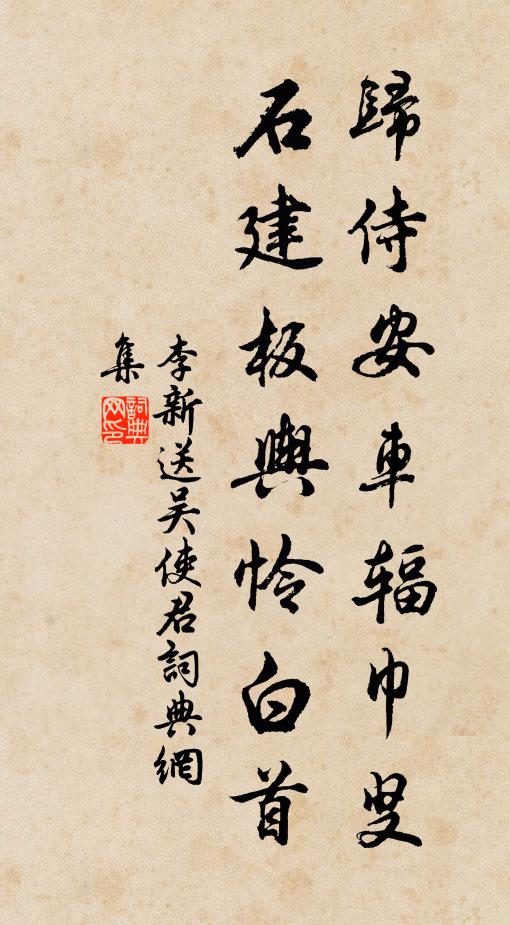 歸侍安車辐巾叟
石建板輿怜白首
李新送吴使君詞典網
集
詞典
网印